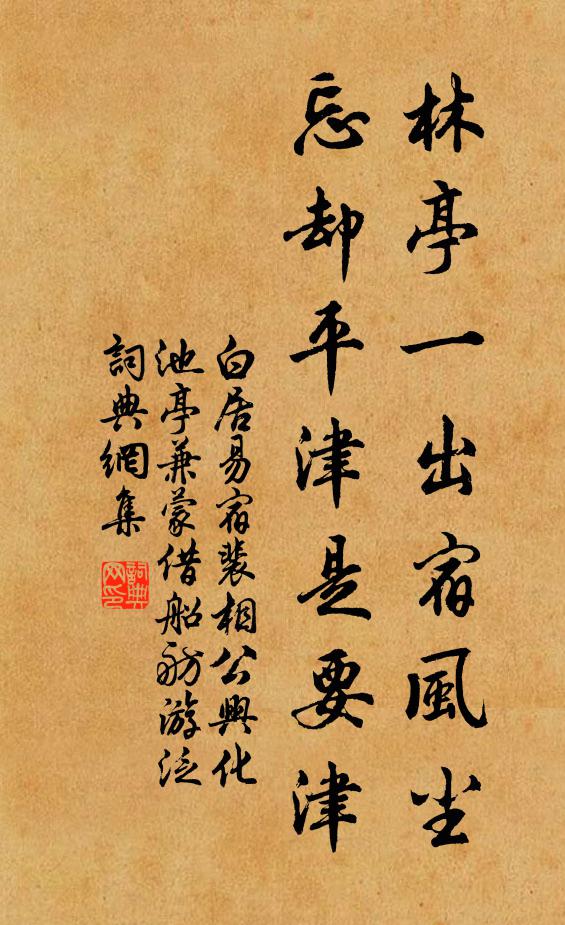 林亭一出宿風尘
忘却平津是要津
白居易宿裴相公興化
池亭兼蒙借船舫游泛
詞典網集
詞典网印